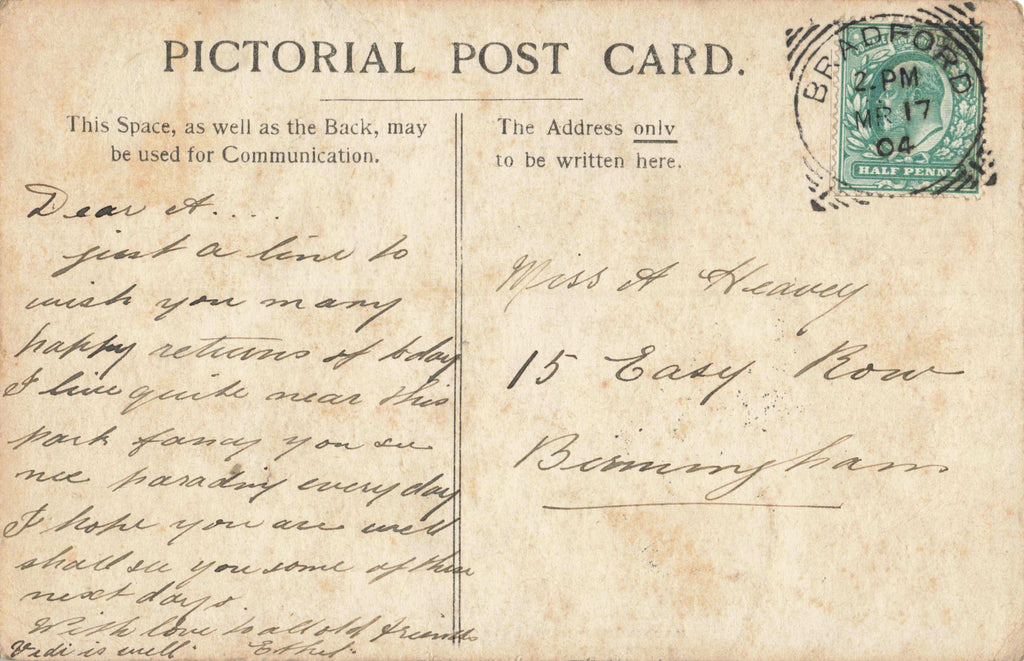 PICTORIAL POST CARD.
This Space, as well as the Back, may
be used for Communication.
The Address only
to be written here.
BRADFORD
2.PM
MR 17
04
HALF PENNY
Dear A....
just a line to
wish you many
happy returns of today
I live quite near this
park fancy you see
me parading every day
I hope you are well
shall see you some of these
next days.
With love to all old friends
Vidi is well Ethel.
Miss A Heavey
15 Easy Row
Birmingham